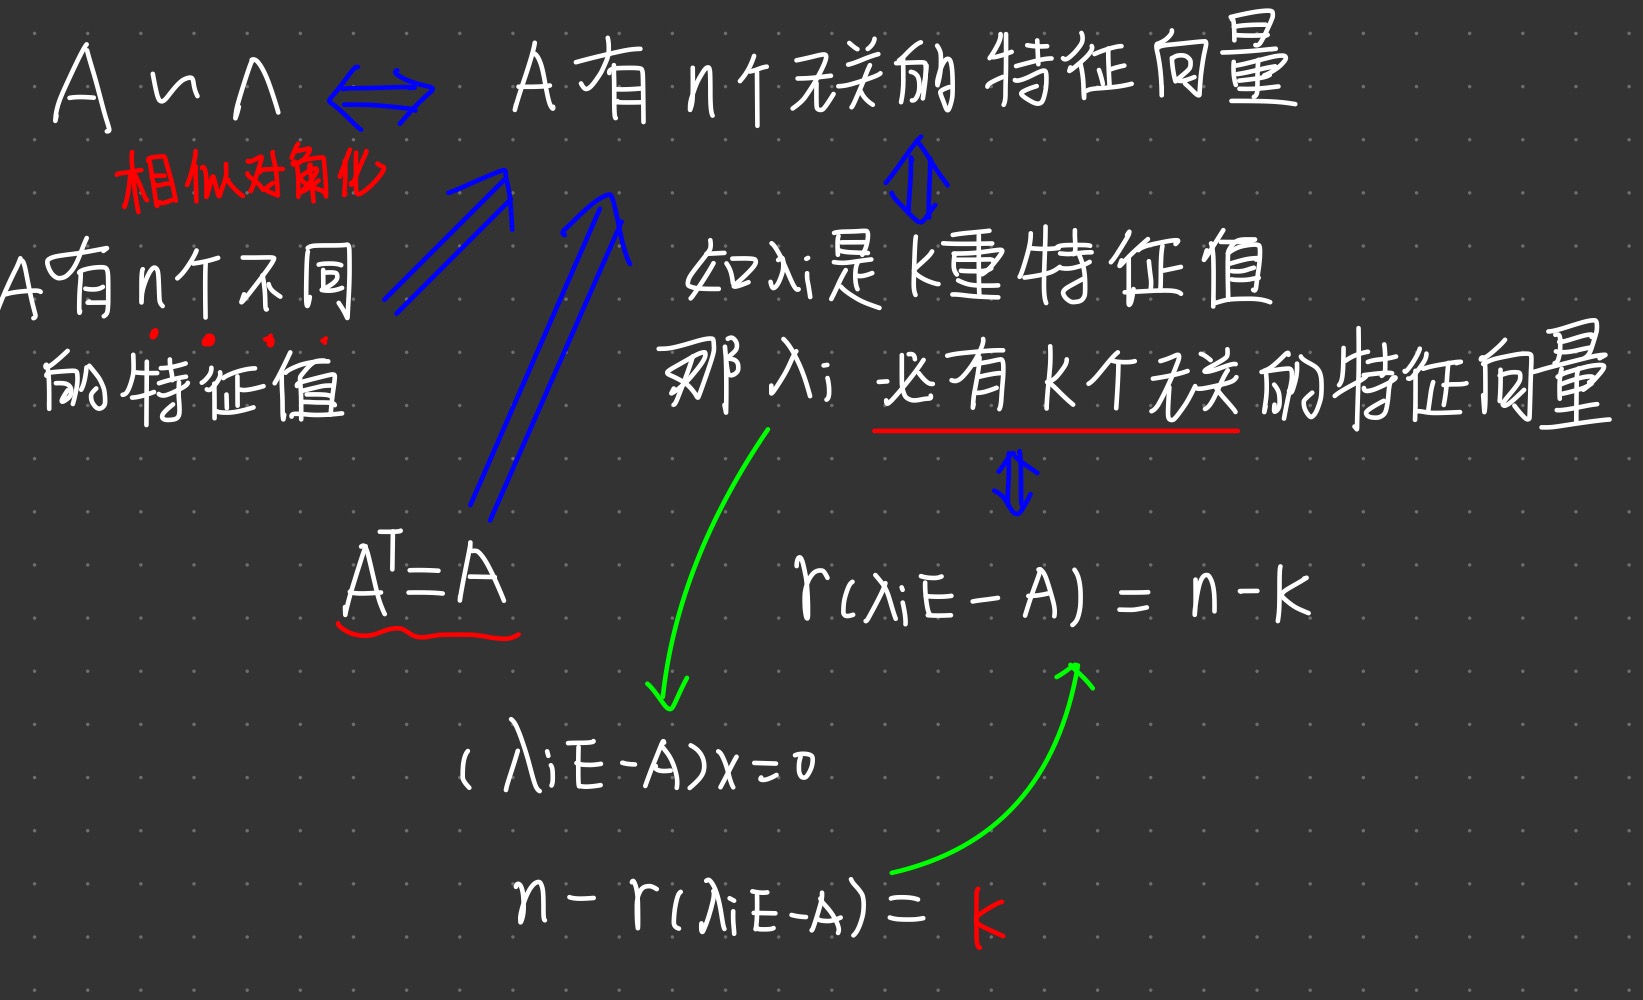 A ∽ Λ ⇔ A有n个无关的特征向量
相似对角化
A有n个不同
的特征值
如λi是k重特征值
那λi必有k个无关的特征向量
Aᵀ=A
r(λiE-A)=n-k
(λiE-A)x=0
n-r(λiE-A)=k